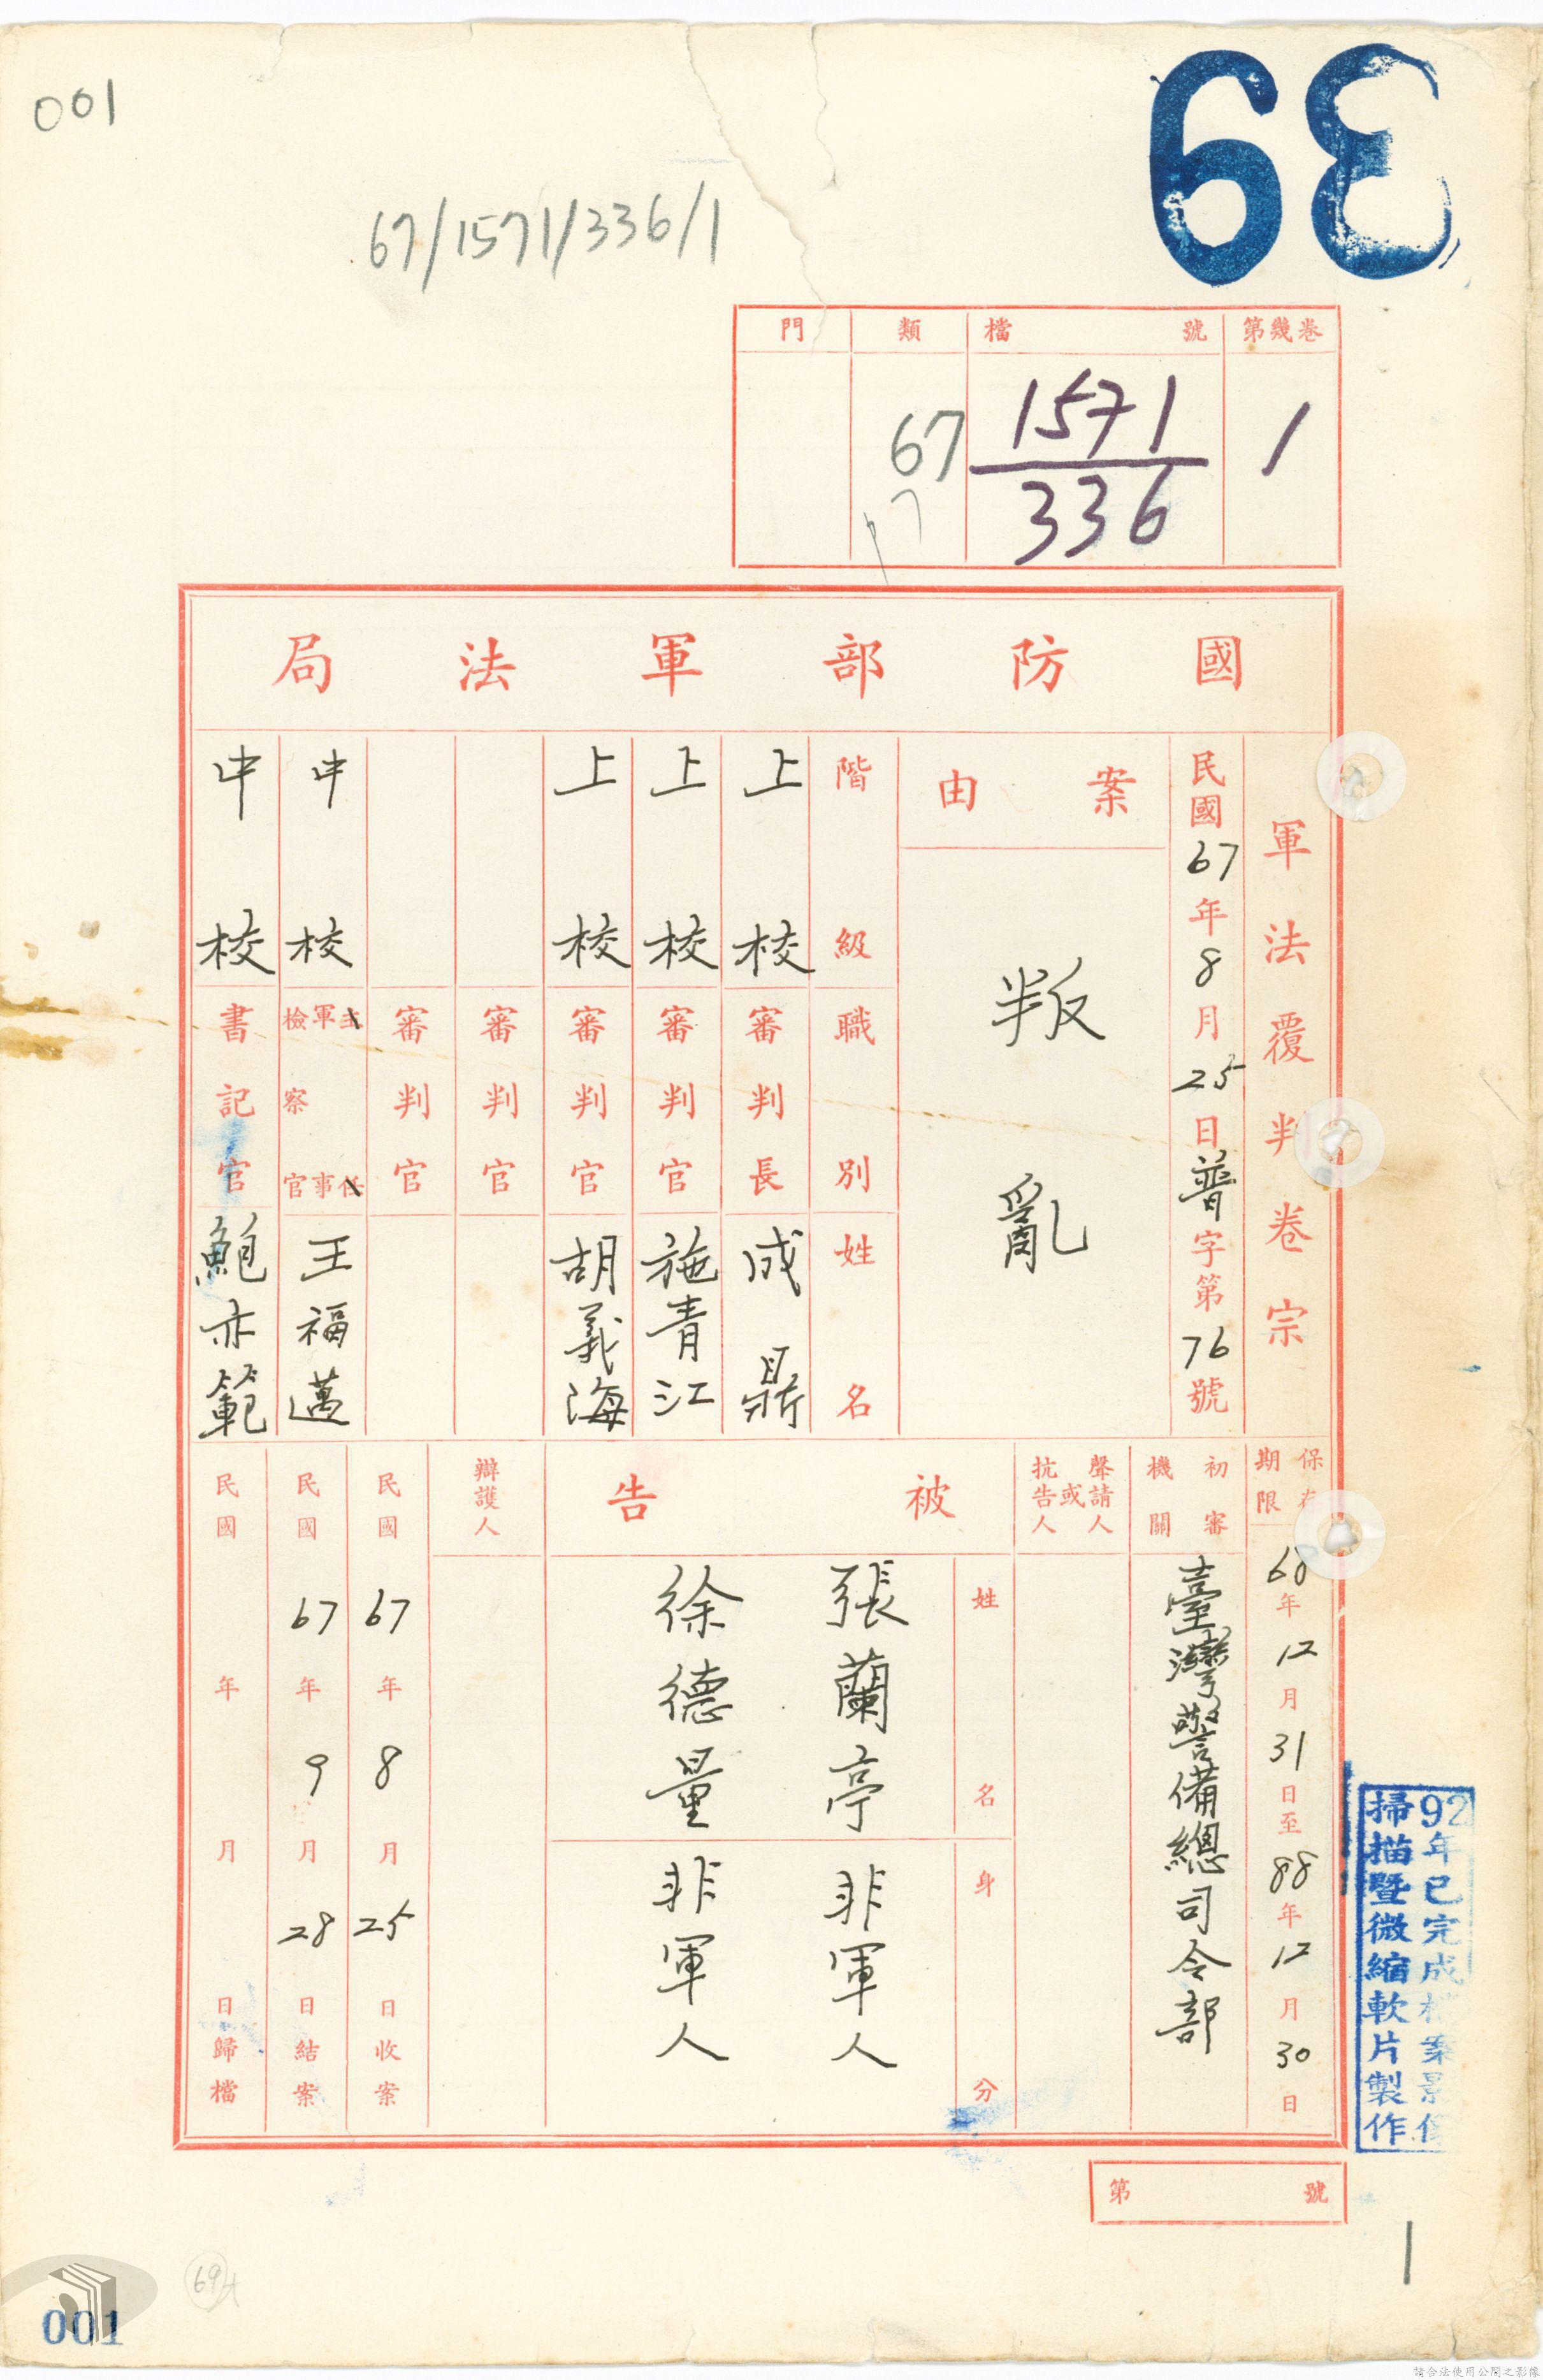 001
63
67/1571/336/1
第幾卷
1
檔號
1571
336
類
67
門
國防部軍法局
軍法覆判卷宗
民國67年8月25日普字第76號
案由
叛亂
階級
職別
姓名
上校
審判長
成鼎
上校
審判官
施青江
上校
審判官
胡義海
審判官
審判官
中校
主任
軍事
檢察官
王福邁
中校
書記官
鮑亦範
保存期限
68年12月31日至88年12月30日
初審機關
臺灣警備總司令部
聲請人或抗告人
被告
姓名
身分
張蘭亭
非軍人
徐德量
非軍人
辯護人
民國67年8月25日收案
民國67年9月28日結案
民國年月日歸檔
92年已完成檔案影像
掃描暨微縮軟片製作
第號
1
69
001
請合法使用公開之影像